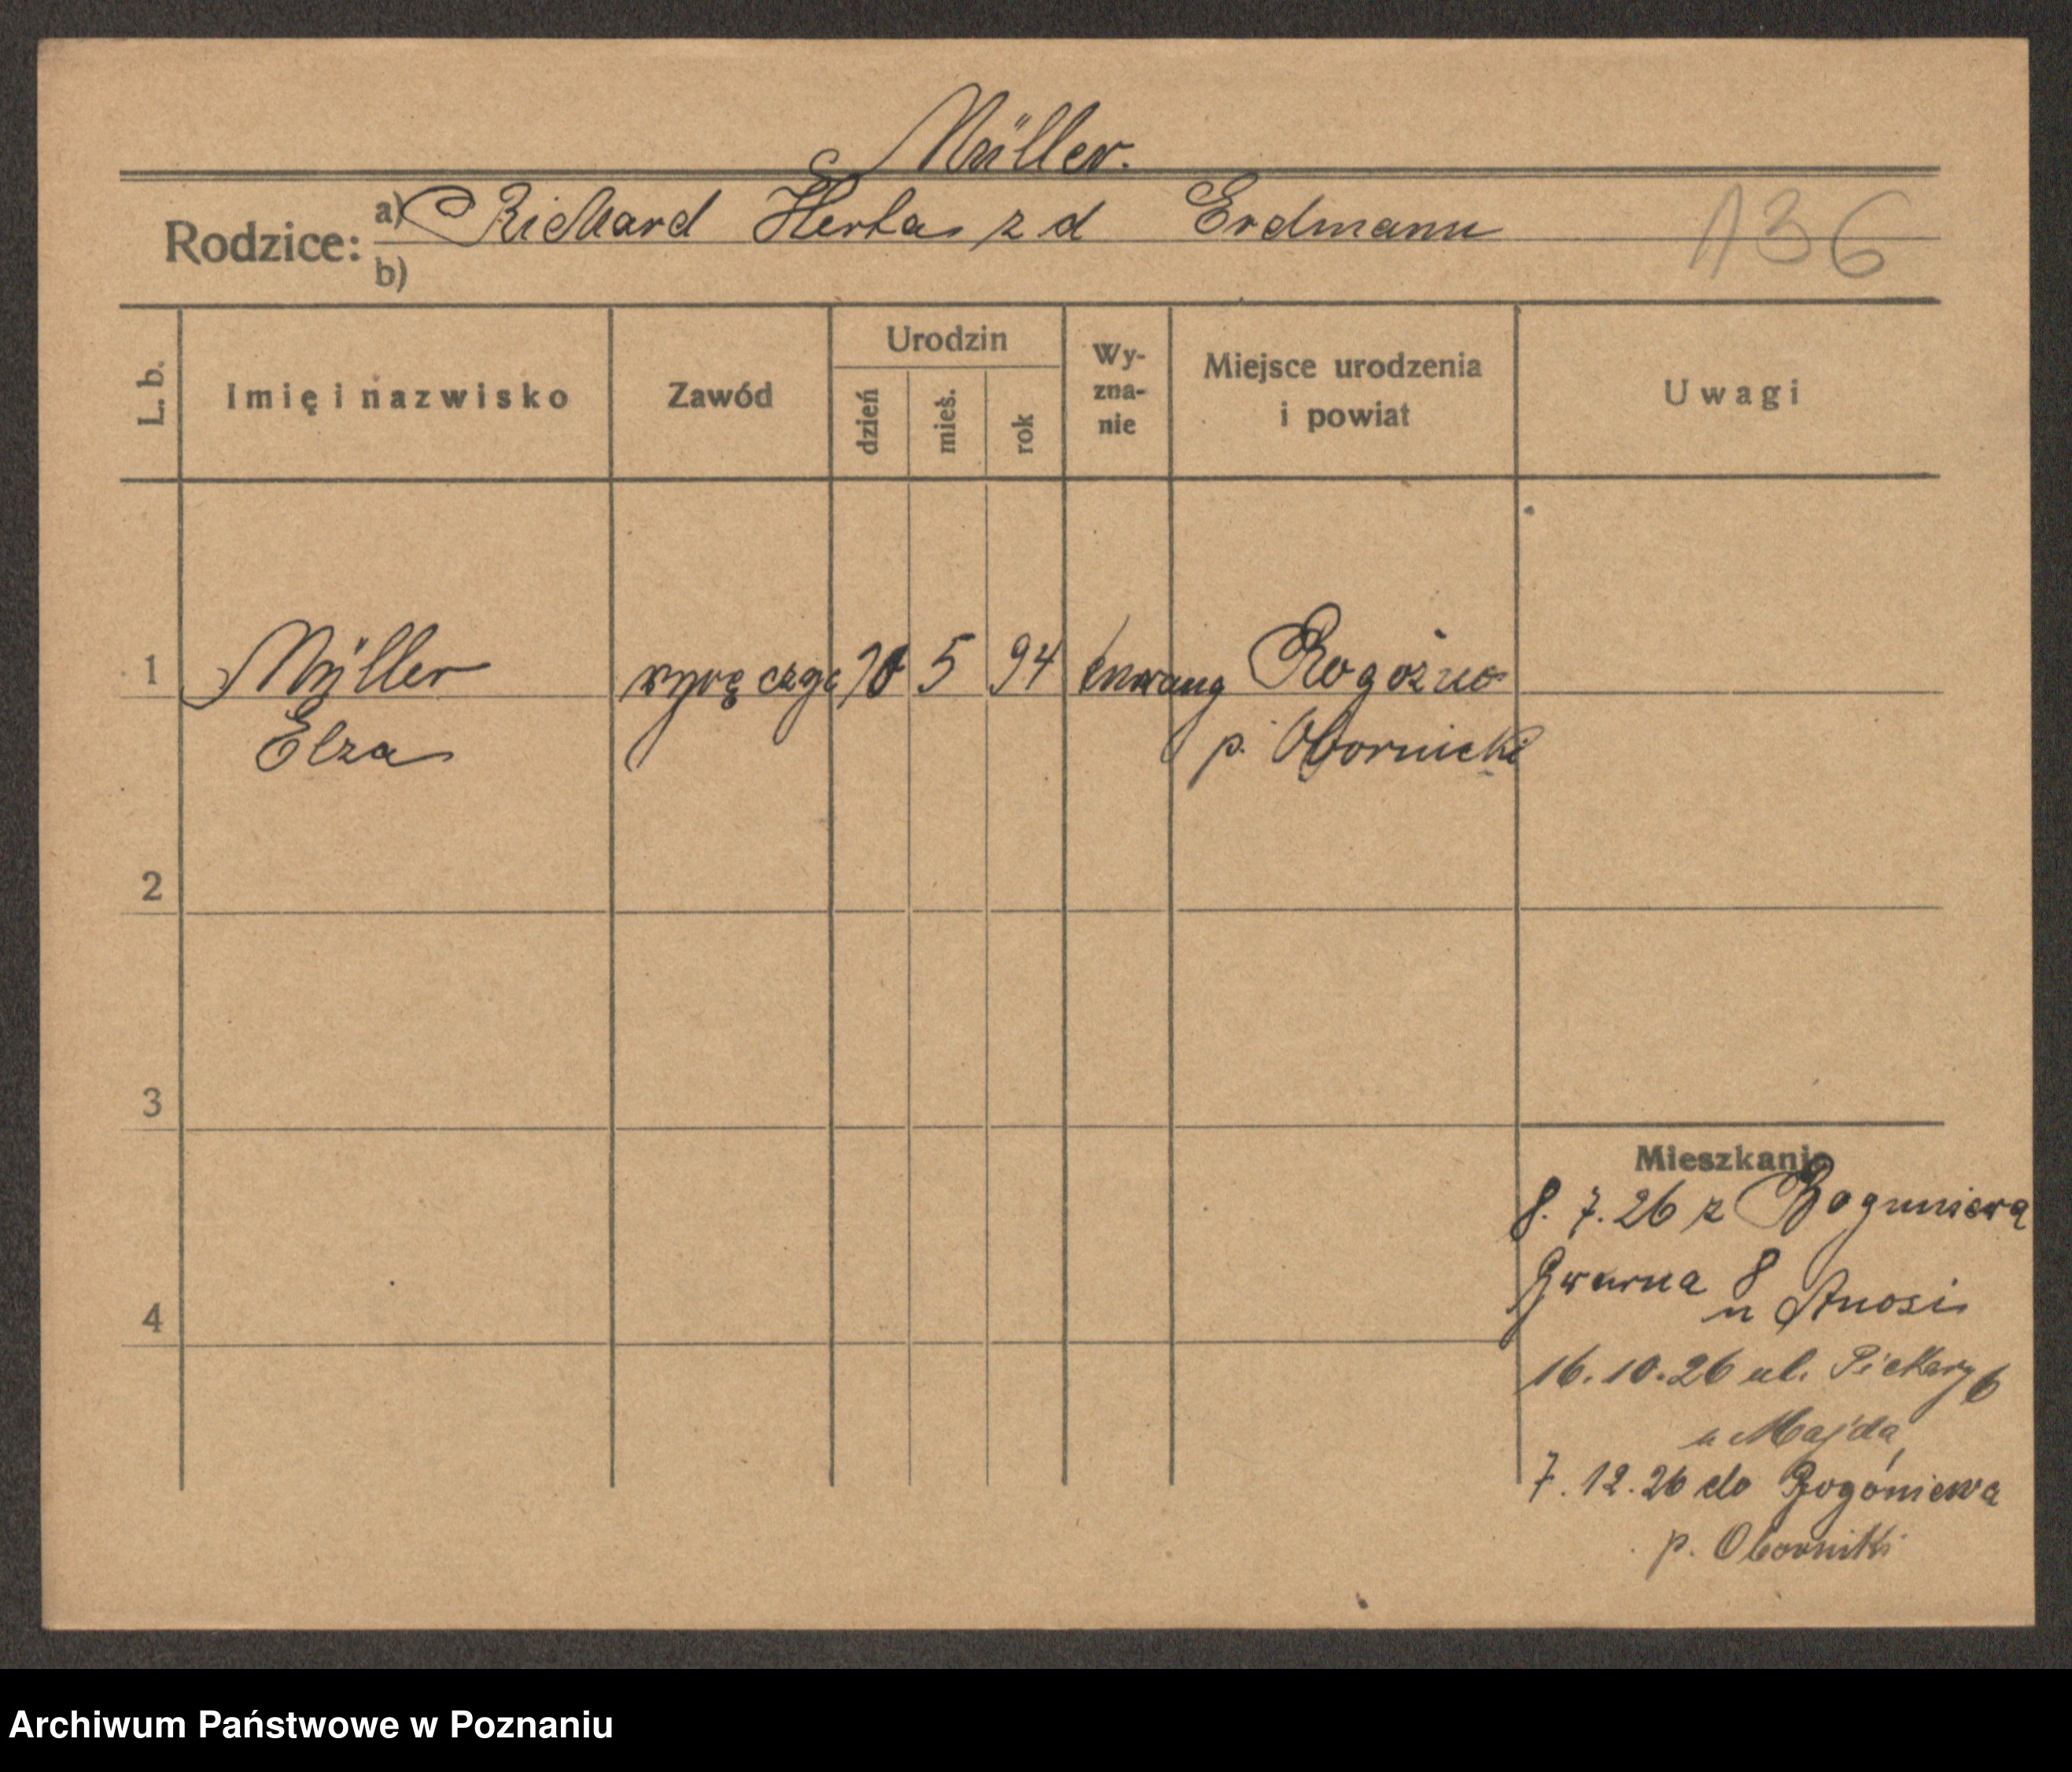 Müller.
Rodzice: a) Richard Herta z d Erdmann
136
b)
L. b.
Imię i nazwisko
Zawód
Urodzin
dzień
mieś.
rok
Wy-
zna-
nie
Miejsce urodzenia
i powiat
Uwagi
1 Müller 5 94 Rogoźno
Elza p. Obornicki
2
3
4
Mieszkanie
8. 7. 26 z
8
u
16. 10. 26 ul. Piekary 6
u Majda
7. 12. 26 do
p. Oborniki
Archiwum Państwowe w Poznaniu